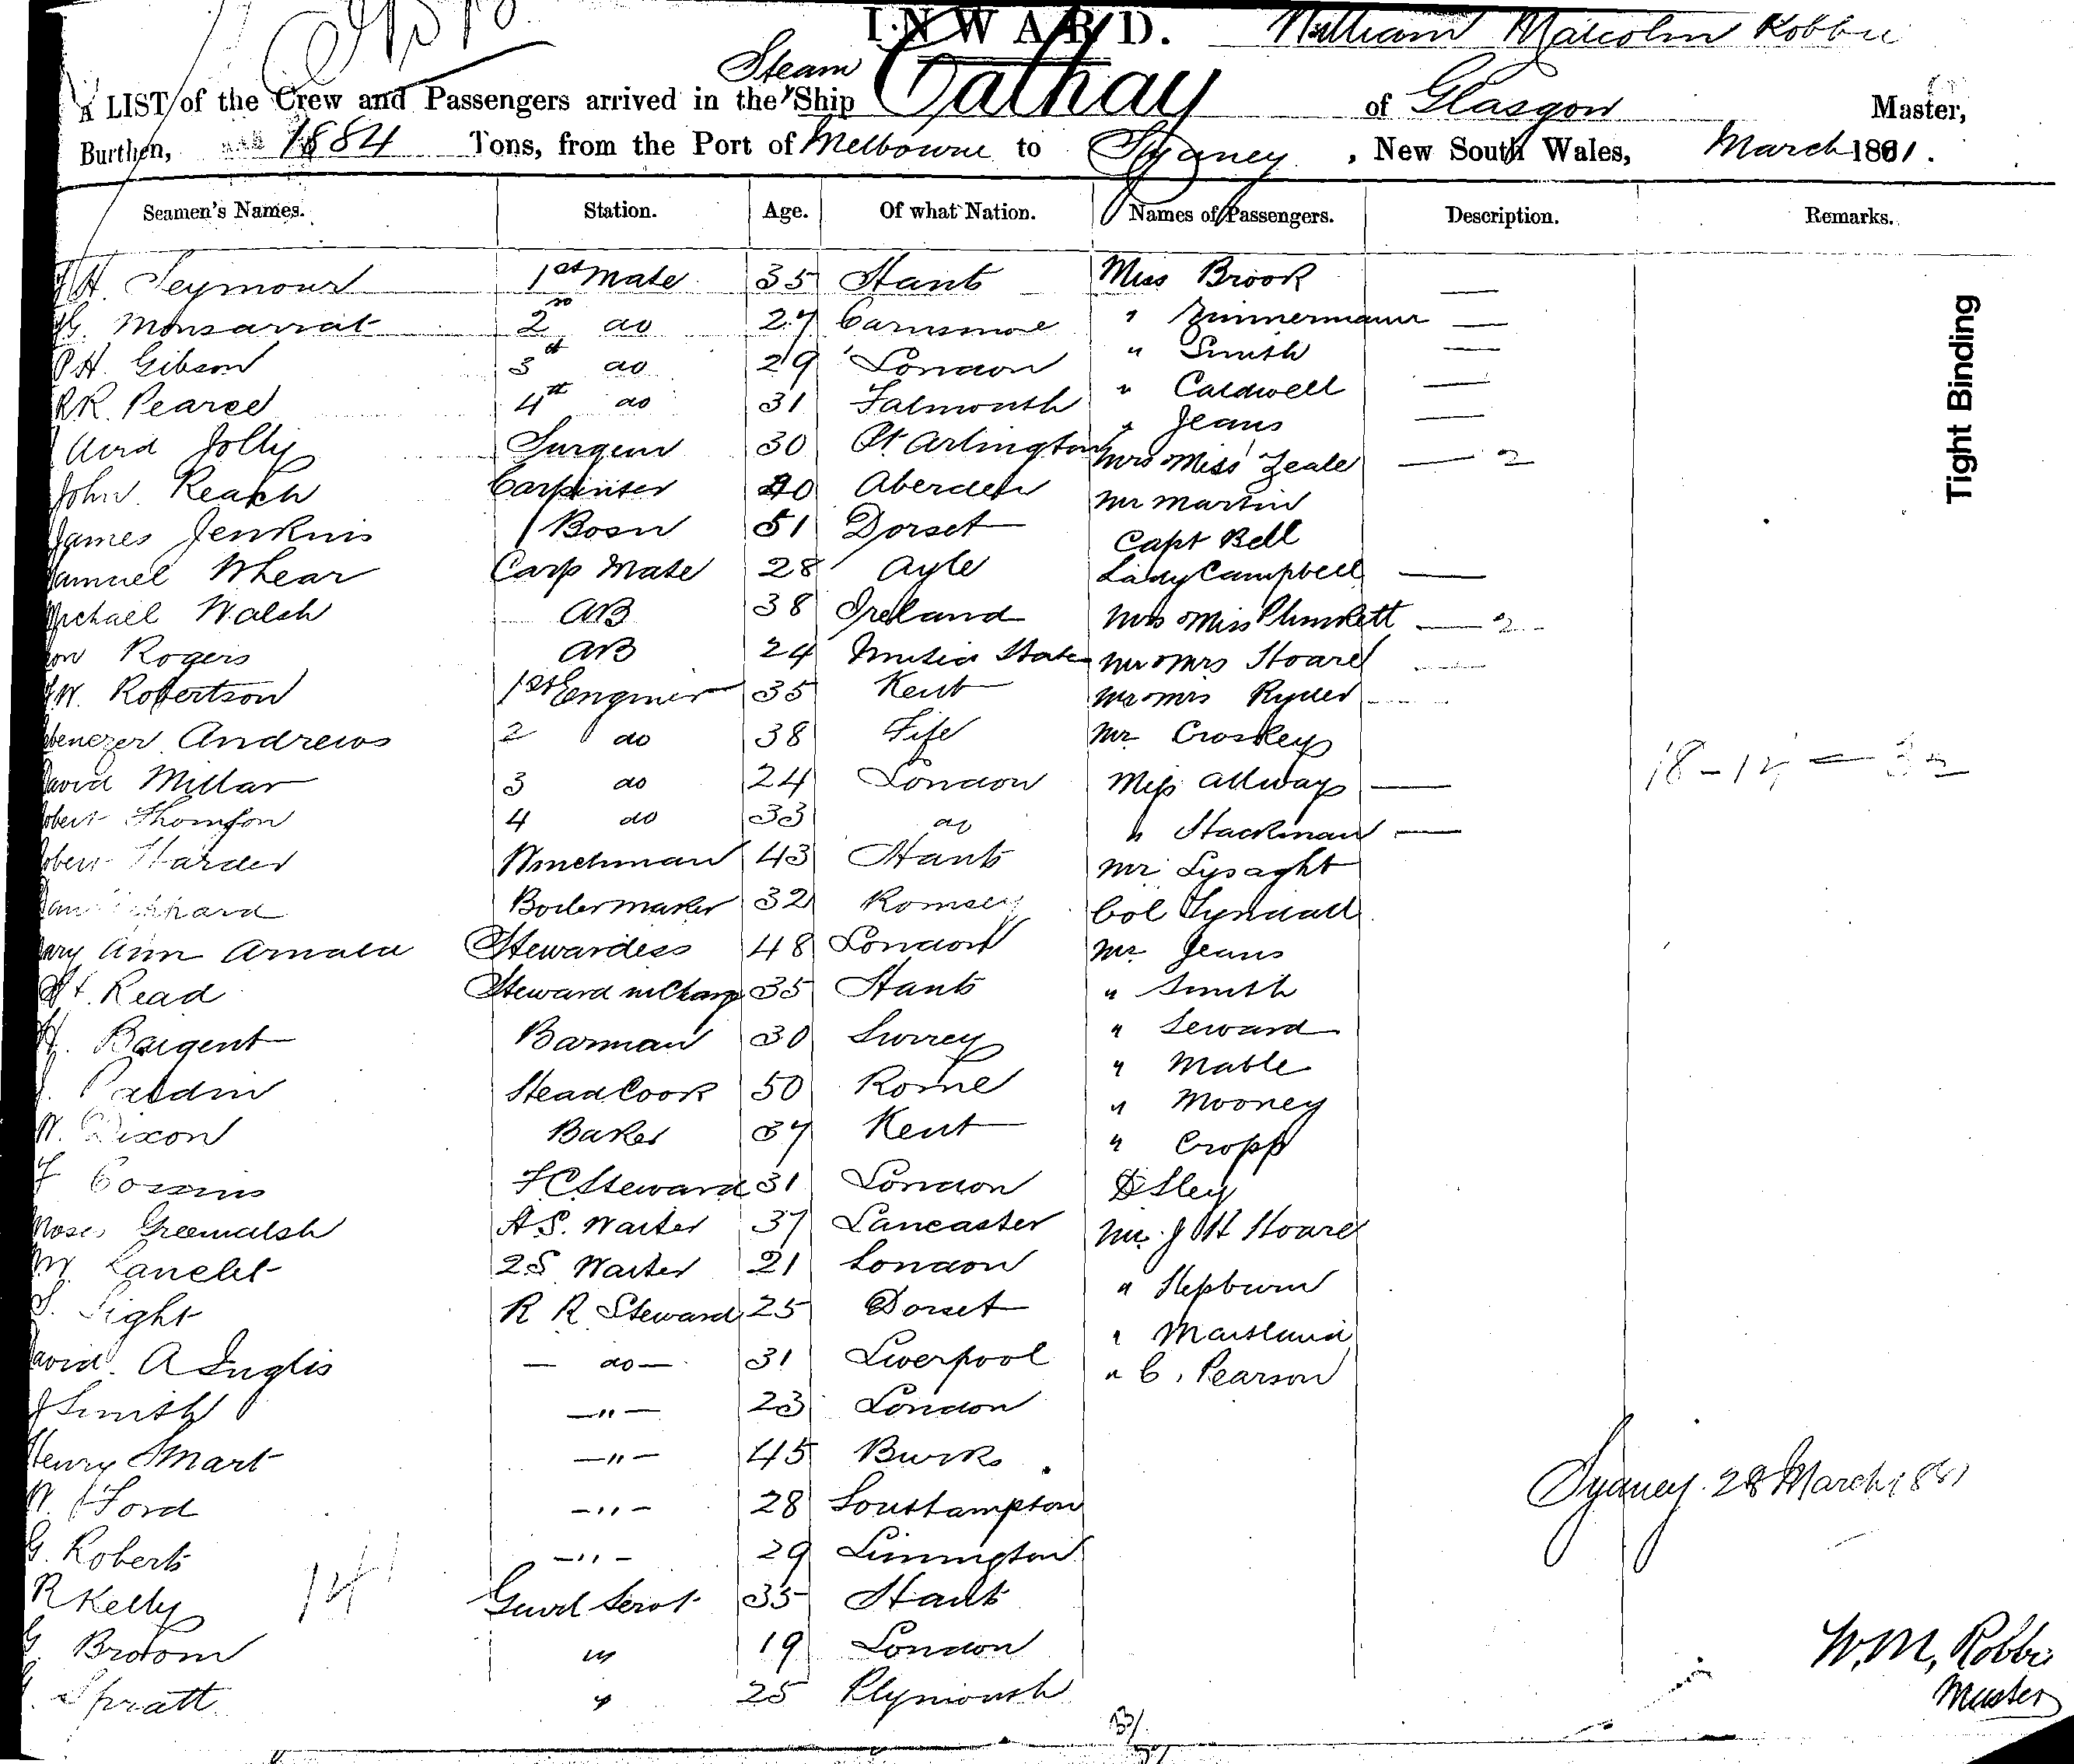 INWARD. William Malcolm Robbie
A LIST of the Crew and Passengers arrived in the Steam Ship Cathay of Glasgow Master,
Burthen, 1884 Tons, from the Port of Melbourne to Sydney, New South Wales, March 1881.
Seamen's Names. Station. Age. Of what Nation. Names of Passengers. Description. Remarks.
H. Seymour 1st Mate 35 Hants Miss Brook —
G. Monsarrat 2nd do 27 " Zimmermann —
P.H. Gibson 3d do 29 London " Smith —
R.R. Pearce 4th do 31 Falmouth " Caldwell —
Aird Jolly Surgeon 30 Pt Arlington " Jeans —
John Reach Carpenter 40 Aberdeen Mrs & Miss Zeale — 2
James Jenkins Bosn 51 Dorset Mr Martin
Samuel Whear Carp Mate 28 Ayle Capt Bell
Michael Walsh AB 38 Ireland Lady Campbell —
Rogers AB 24 United States Mrs & Miss Plunkett — 2
W. Robertson 1st Engineer 35 Kent Mr & Mrs Hoare
Ebenezer Andrews 2 do 38 Fife Mr & Mrs Ryder
David Millar 3 do 24 London Mr Croskey
Robert Thomson 4 do 33 do Miss Allway —
Robert Harder Winchman 43 Hants " Stackman —
18 – 14 — 32
Boilermaker 32 Romsey Mr Lysaght
Mary Ann Arnold Stewardess 48 London Col Tyndall
H. Read Steward in Charge 35 Hants Mr Jeans
H. Bargent Barman 30 Surrey " Smith
Head Cook 50 Rome " Seward
W. Dixon Baker 37 Kent " Mable
F Cozens F C Steward 31 London " Mooney
Moses Greenalsh A.S. Waiter 37 Lancaster " Cropp
W. Lancelet 2 S Waiter 21 London D Sley
S. Light R R Steward 25 Dorset Mr J H Hoare
David A Inglis — do — 31 Liverpool " Hepburn
J Smith — " — 23 London " Maitland
Henry Smart — " — 45 Burks " C. Pearson
W. Ford — " — 28 Southampton
Sydney. 28 March 1881
G. Roberts — " — 29 Limington
R Kelly Genrl Servt 35 Hants
14
G. Broom " 19 London
W.M. Robbie
Spratt " 25 Plymouth
Master
Tight Binding